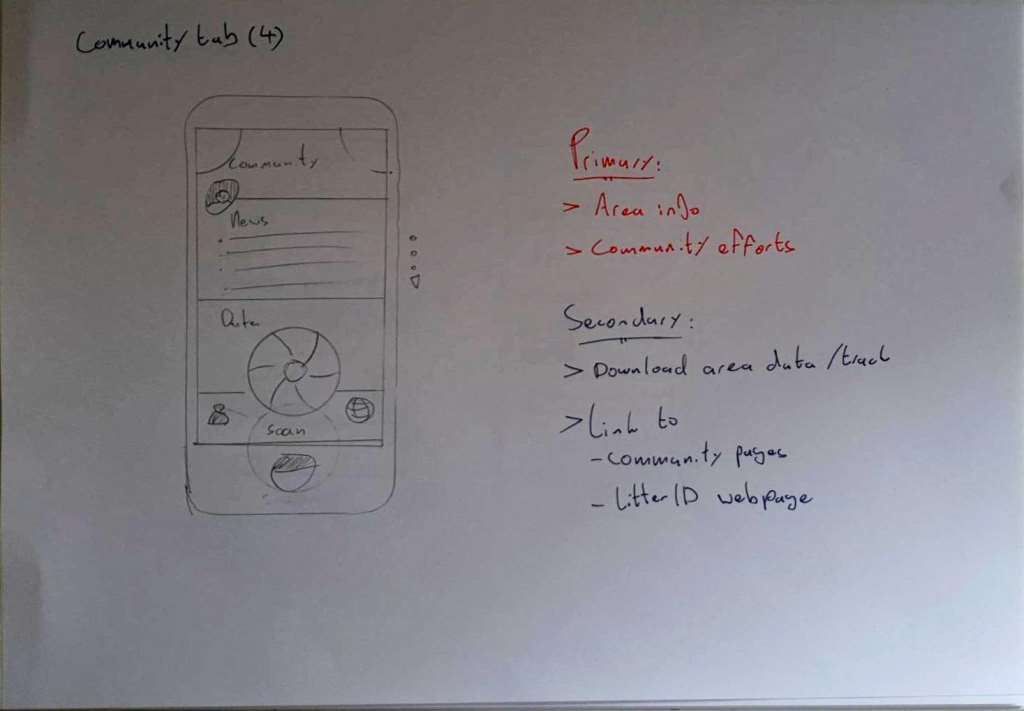 Community tab (4)
Community
News
Data
scan
Primary:
> Area info
> Community efforts
Secondary:
> Download area data / track
> Link to
- community pages
- LitterID webpage